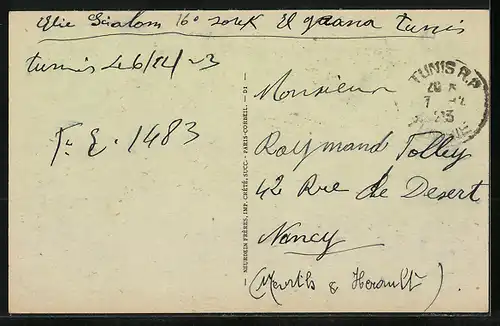 Elie Scialom 16 souk El grana tunis
tunis le 6/12/23
T. E. 1483
Monsieur
Raymond Tolley
42 Rue de Desert
Nancy
(Meurth & Herault).
TUNIS R.P
20
7
23
— NEURDEIN FRÈRES, IMP. CRÉTÉ, SUCC. - PARIS-CORBEIL. — D1 —